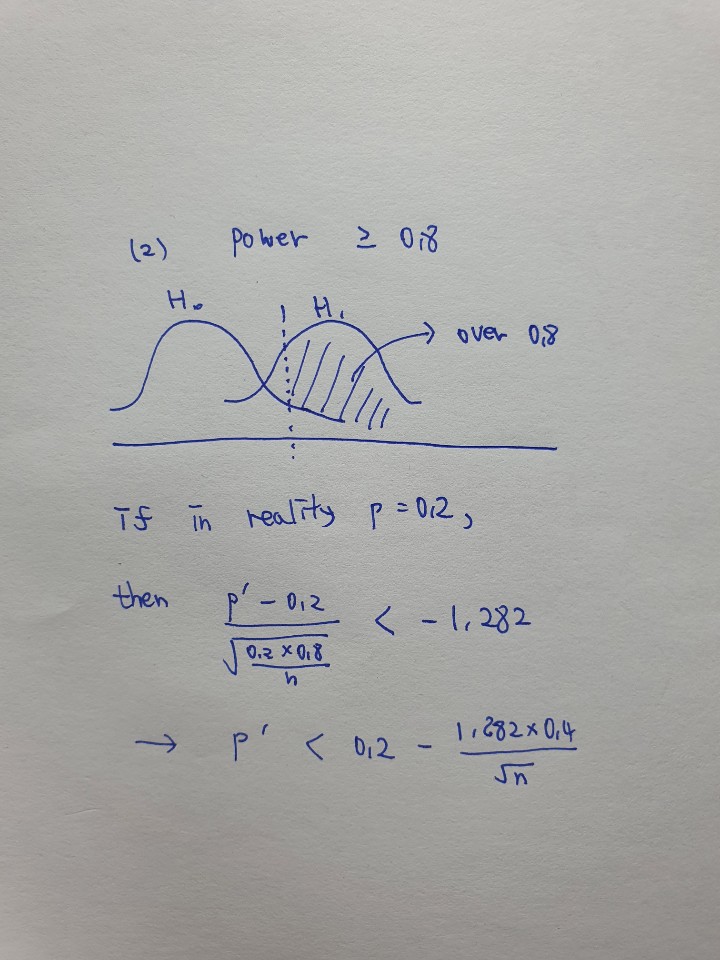 (2) power ≥ 0.8
H₀ H₁
over 0.8
if in reality p = 0.2,
then (p' - 0.2) / √(0.2 × 0.8 / n) < - 1.282
→ p' < 0.2 - (1.282 × 0.4) / √n